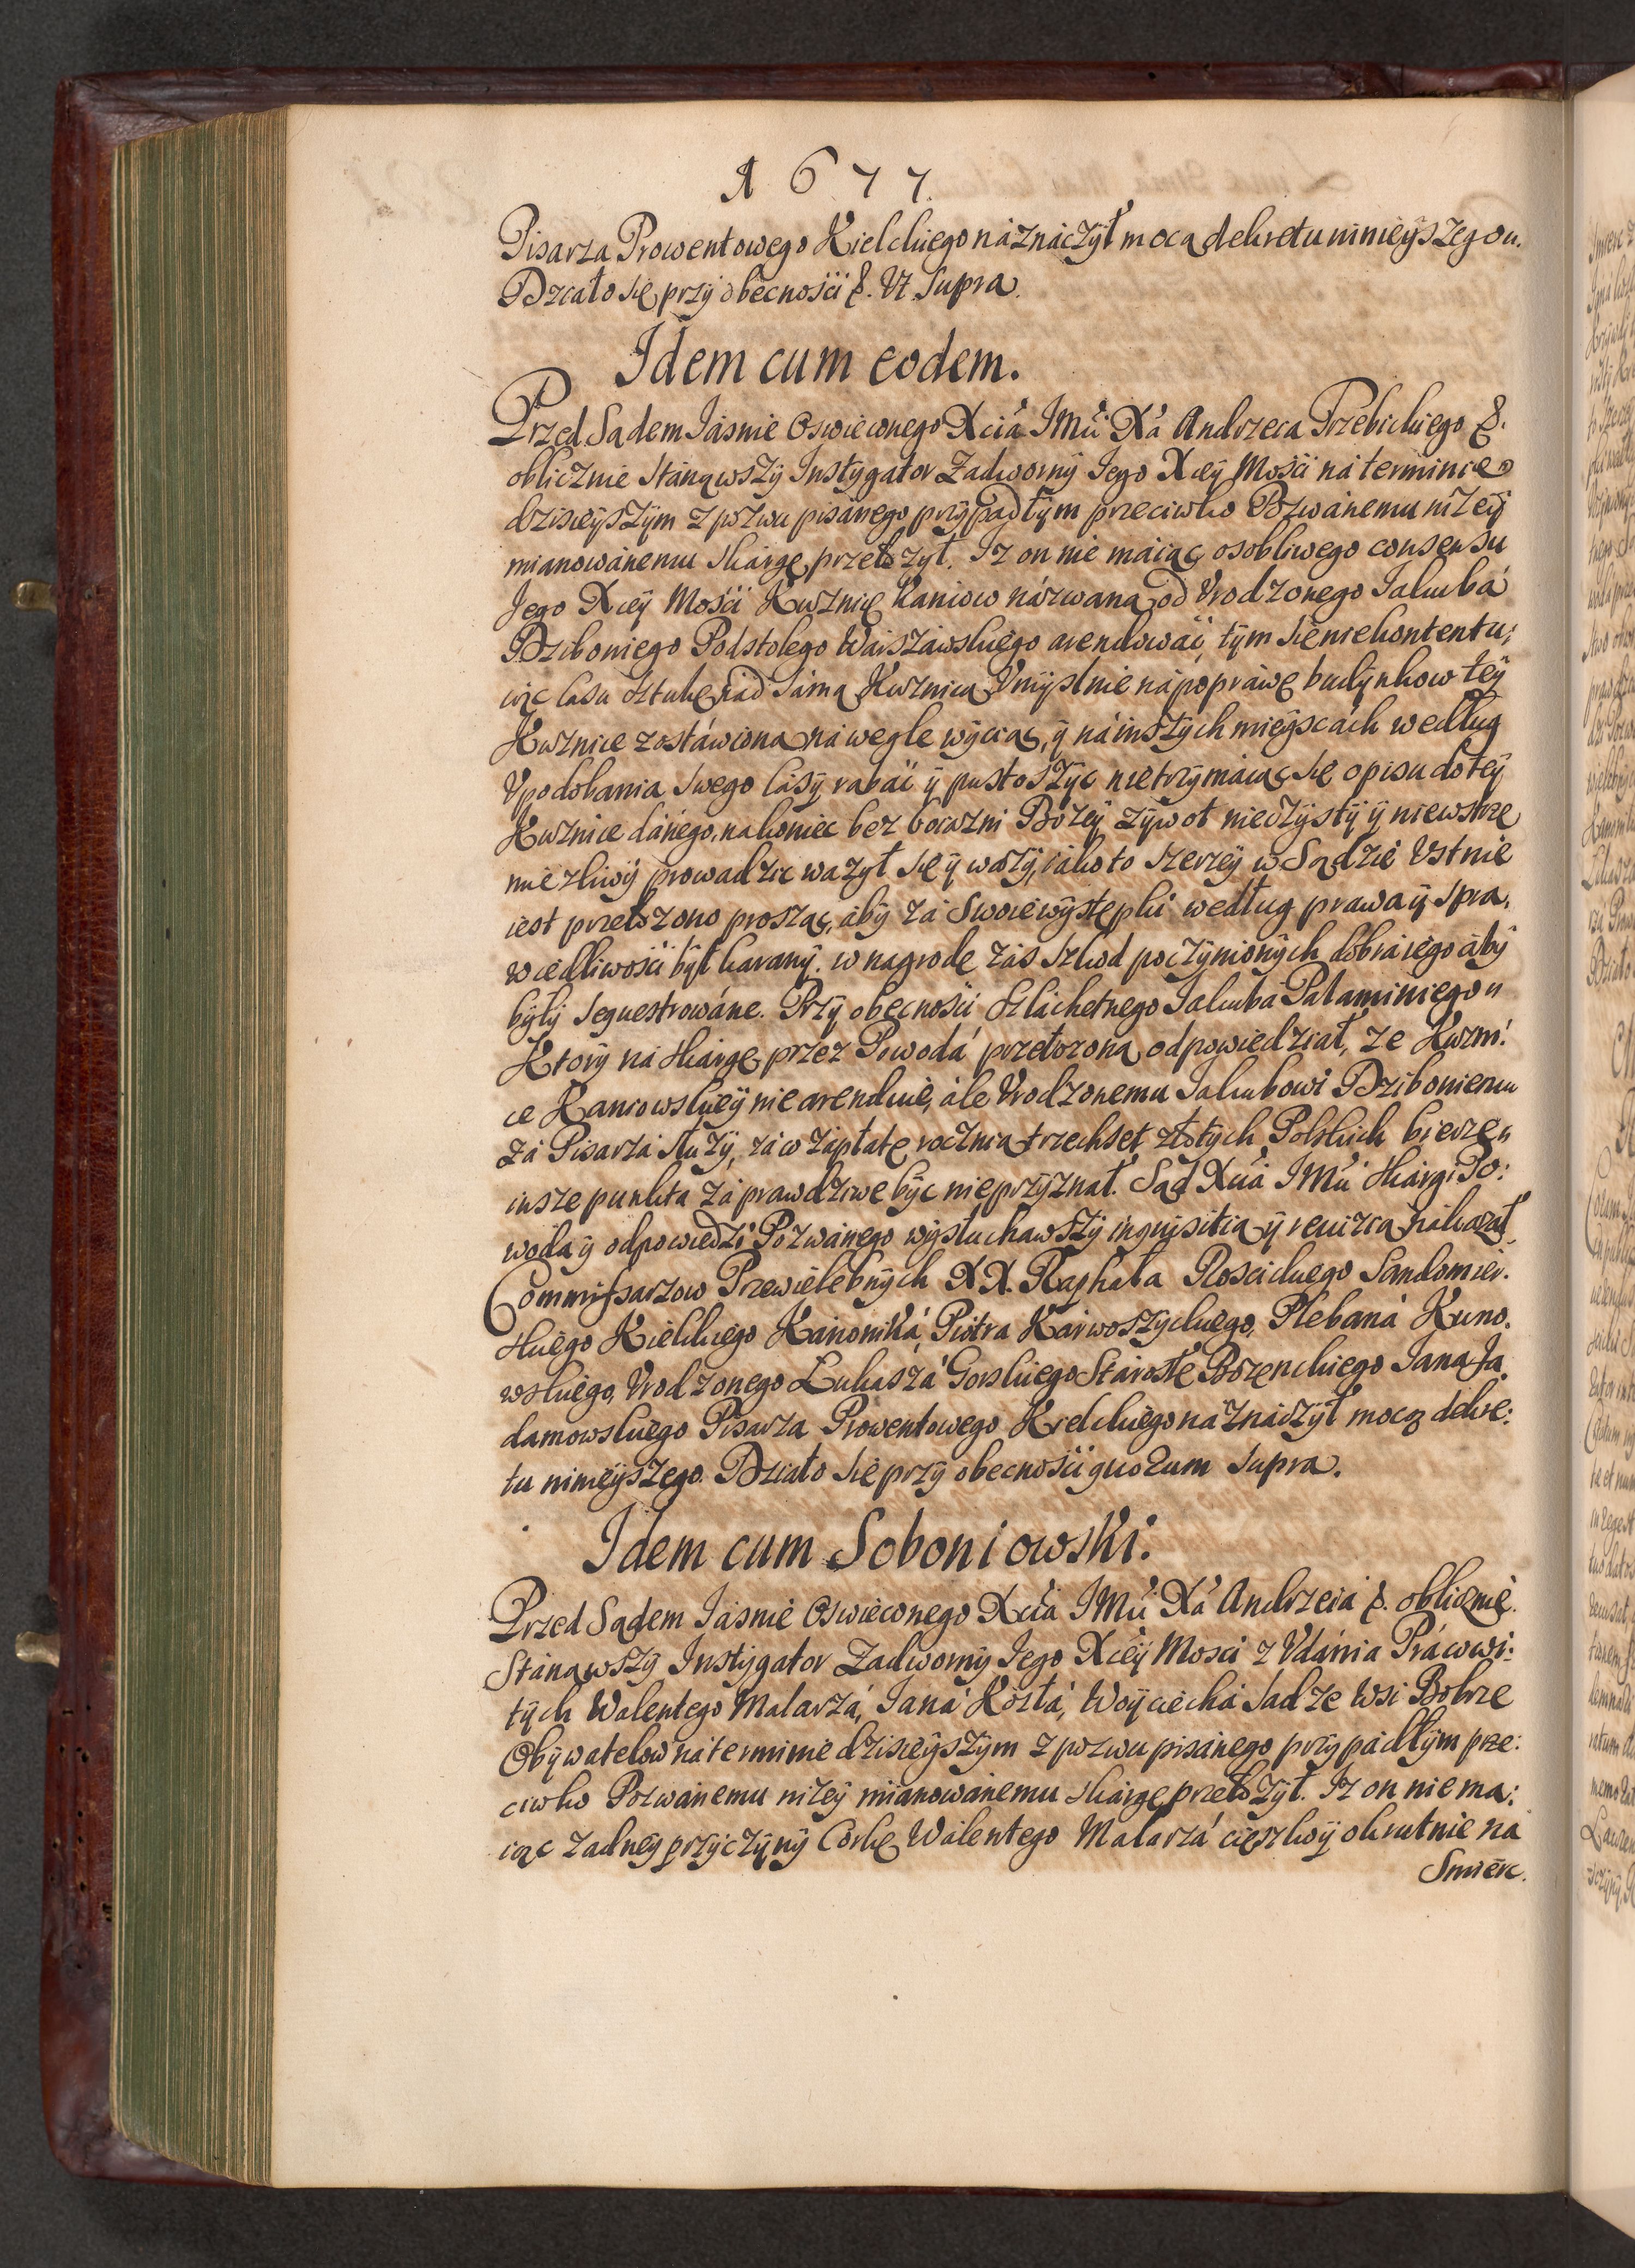 A 1677.
Pisarza Prowentowego Kielckiego náznáczył mocą dekretu ninieÿszego.
Działo się przÿ obecności &. Vt Supra.
Idem cum eodem.
Przed Sądem Iásnie Oswieconego Xcia IMci Xa Andrzeia Trzebickiego &.
oblicznie Stánąwszÿ Instÿgator Zadwornÿ Iego Xceÿ Mosci ná terminie
dzisieÿszÿm z pozwu pisánego przÿpadłÿm przeciwko Pozwánemu niżeÿ
mianowánemu skárgę przełożÿł. Iz on nie máiąc osobliwego consensu
Jego Xceÿ Mosci Kuźnicę Kaniow názwaną od Vrodzonego Iakubá
Dziboniego Podstolego Wárszáwskiego arendować, tÿm się niekontentu:
iąc lasu sztukę nád sámą Kuźnicą Vmÿslnie ná popráwę budÿnkow teÿ
Kuźnice zostáwioną ná węgle wÿciąc, ÿ ná inszÿch mieÿscách według
Vpodobania swego lasÿ rabać ÿ pustoszÿc nietrzÿmáiąc się opisu do teÿ
Kuźnice dánego, nakoniec bez boiazni Bożeÿ zÿwot nieczÿstÿ ÿ niewstrze
mięzliwÿ prowadzic ważÿł się ÿ ważÿ, iáko to szerzeÿ w Sądzie Vstnie
iest przełożono prosząc, ábÿ zá swoie wÿstępki według prawa ÿ spra,
wiedliwości bÿł karanÿ. w nagrodę zás szkod poczÿnionÿch dobrá iego ábÿ
bÿłÿ sequestrowáne. Przÿ obecności Szláchetnego Iakubá Pałaminiego
Ktorÿ ná skárgę przez Powodá przełożoną odpowiedział, że Kuzni:
ce Kaniowskieÿ nie arenduie, ále Vrodzonemu Iakubowi Dziboniemu
zá Pisarzá słuzÿ, zá co zápłatę rocznią trzechset złotÿch Polskich bierze,
insze punkta zá prawdziwe bÿc nieprzÿznał. Sąd Xcia IMci skárgi Po:
wodá ÿ odpowiedzi Pozwánego wÿsłuchawszÿ inquisitią ÿ rewizią nákazał
Commissarzow Przewielebnÿch XX. Raphała Roscickiego Sandomier.
skiego Kielckiego Kánoniká, Piotra Kárwoszÿckiego, Plebaná Kuno.
wskiego, Vrodzonego Łukaszá Gorskiego Stárostę Bozęnckiego Iana Ja
damowskiego Pisarza Prowentowego Kielckiego náznáczÿł mocą dekre:
tu ninieÿszego. Działo się przÿ obecności quorum supra.
Idem cum Soboniowski.
Przed Sądem Iásnie Oswieconego Xcia IMci Xa Andrzeia &. oblicznie
Stánąwszÿ Instÿgator Zadwornÿ Iego Xceÿ Mosci z Vdánia Prácowi:
tÿch Walentego Malarzá, Ianá Kostá, Woÿciechá Sadze wsi Bobrze
Obÿwatelow ná terminie dzisieÿszÿm z pozwu pisánego przÿpádłÿm prze:
ciwko Pozwánemu niżeÿ miánowánemu skárgę przełożÿł. Iz on niema:
iąc zadneÿ przÿczÿnÿ Corkę Walentego Malarzá cięszkoÿ okrutnie na
Smierc.